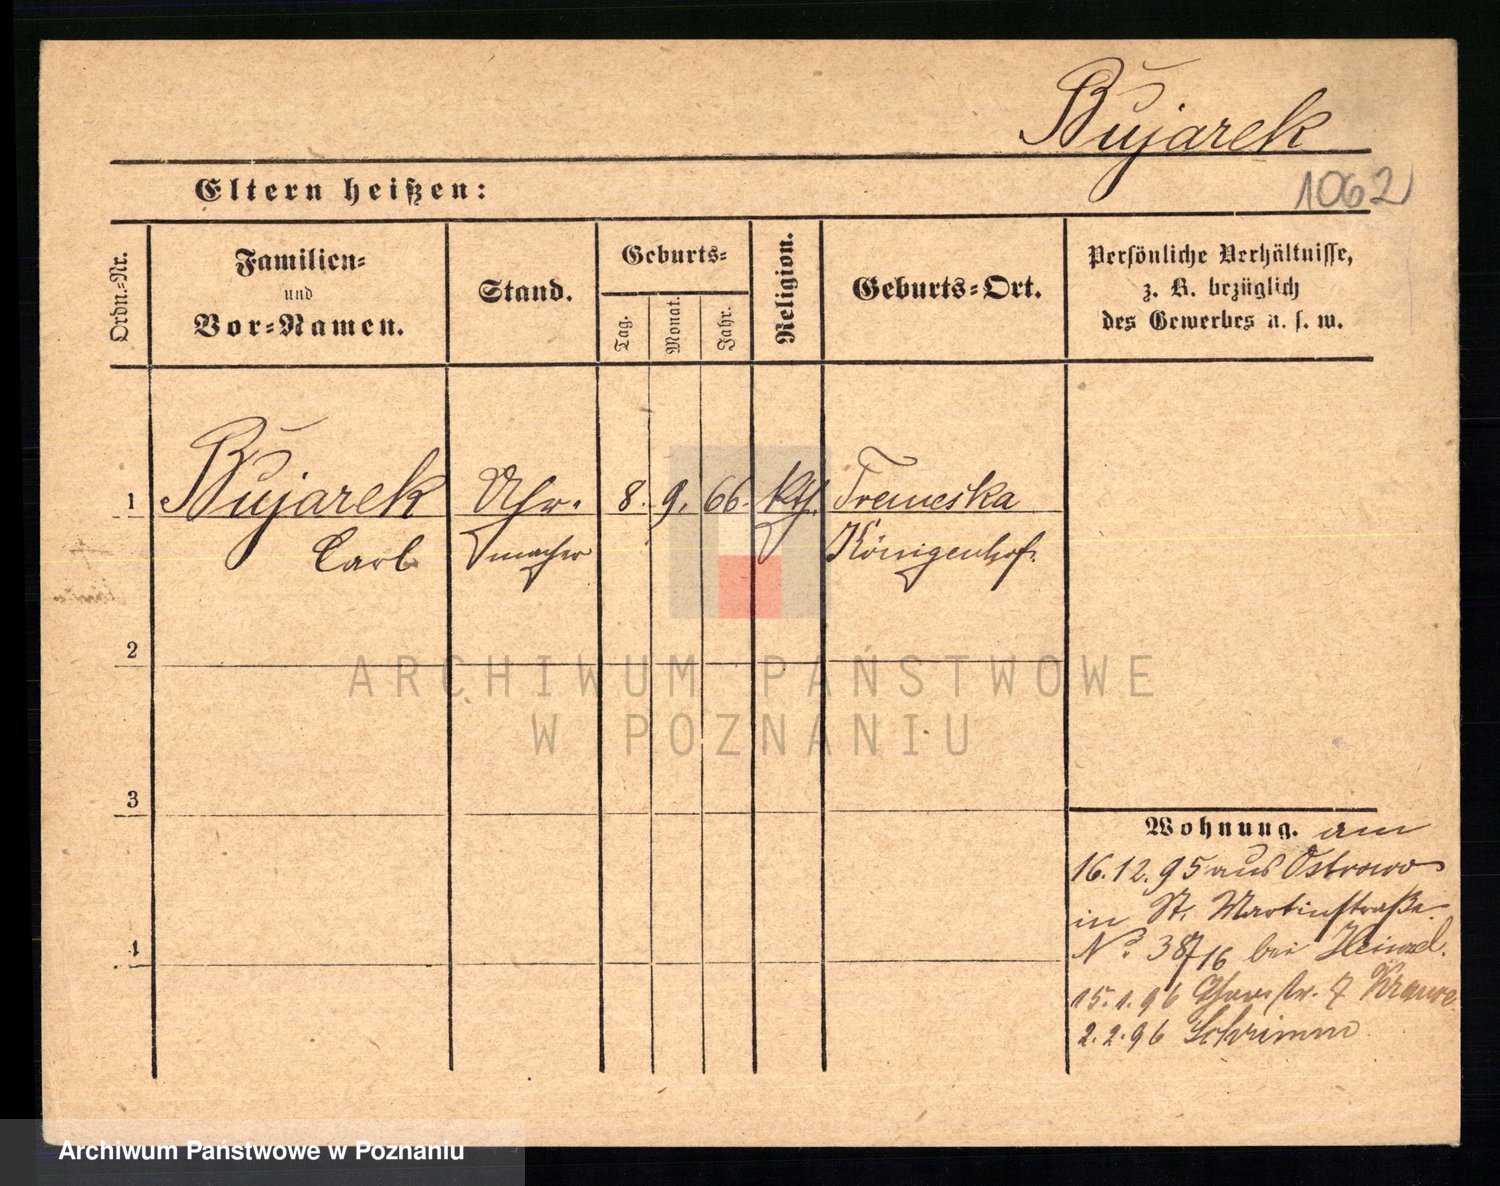 Bujarek
1062
Eltern heißen:
Ordn.-Nr.
Familien-
und
Vor-Namen.
Stand.
Geburts-
Tag.
Monat.
Jahr.
Religion.
Geburts-Ort.
Persönliche Verhältnisse,
z. B. bezüglich
des Gewerbes u. s. w.
1 Bujarek Uhr- 8. 9. 66. kth. Tremeska
Carl macher Königenhof.
2
ARCHIWUM PAŃSTWOWE
W POZNANIU
3
Wohnung. am
16.12.95 aus Ostrowo
in St. Martinstraße
No. 38/16 bei Heinzel.
4
15.1.96 7 Krause
2.2.96 Schrimm
Archiwum Państwowe w Poznaniu